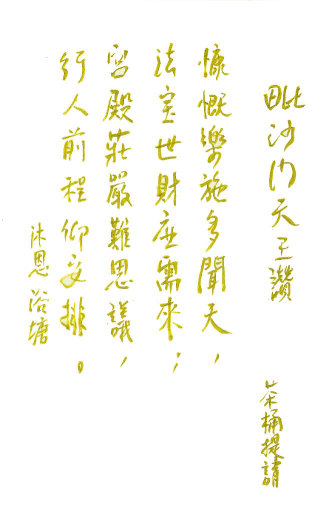 毗沙门天王讚
茶桶提請
慷慨樂施多聞天，
法寶世財应需來；
宮殿莊嚴難思議，
行人前程仰安排。
沐恩浴塘